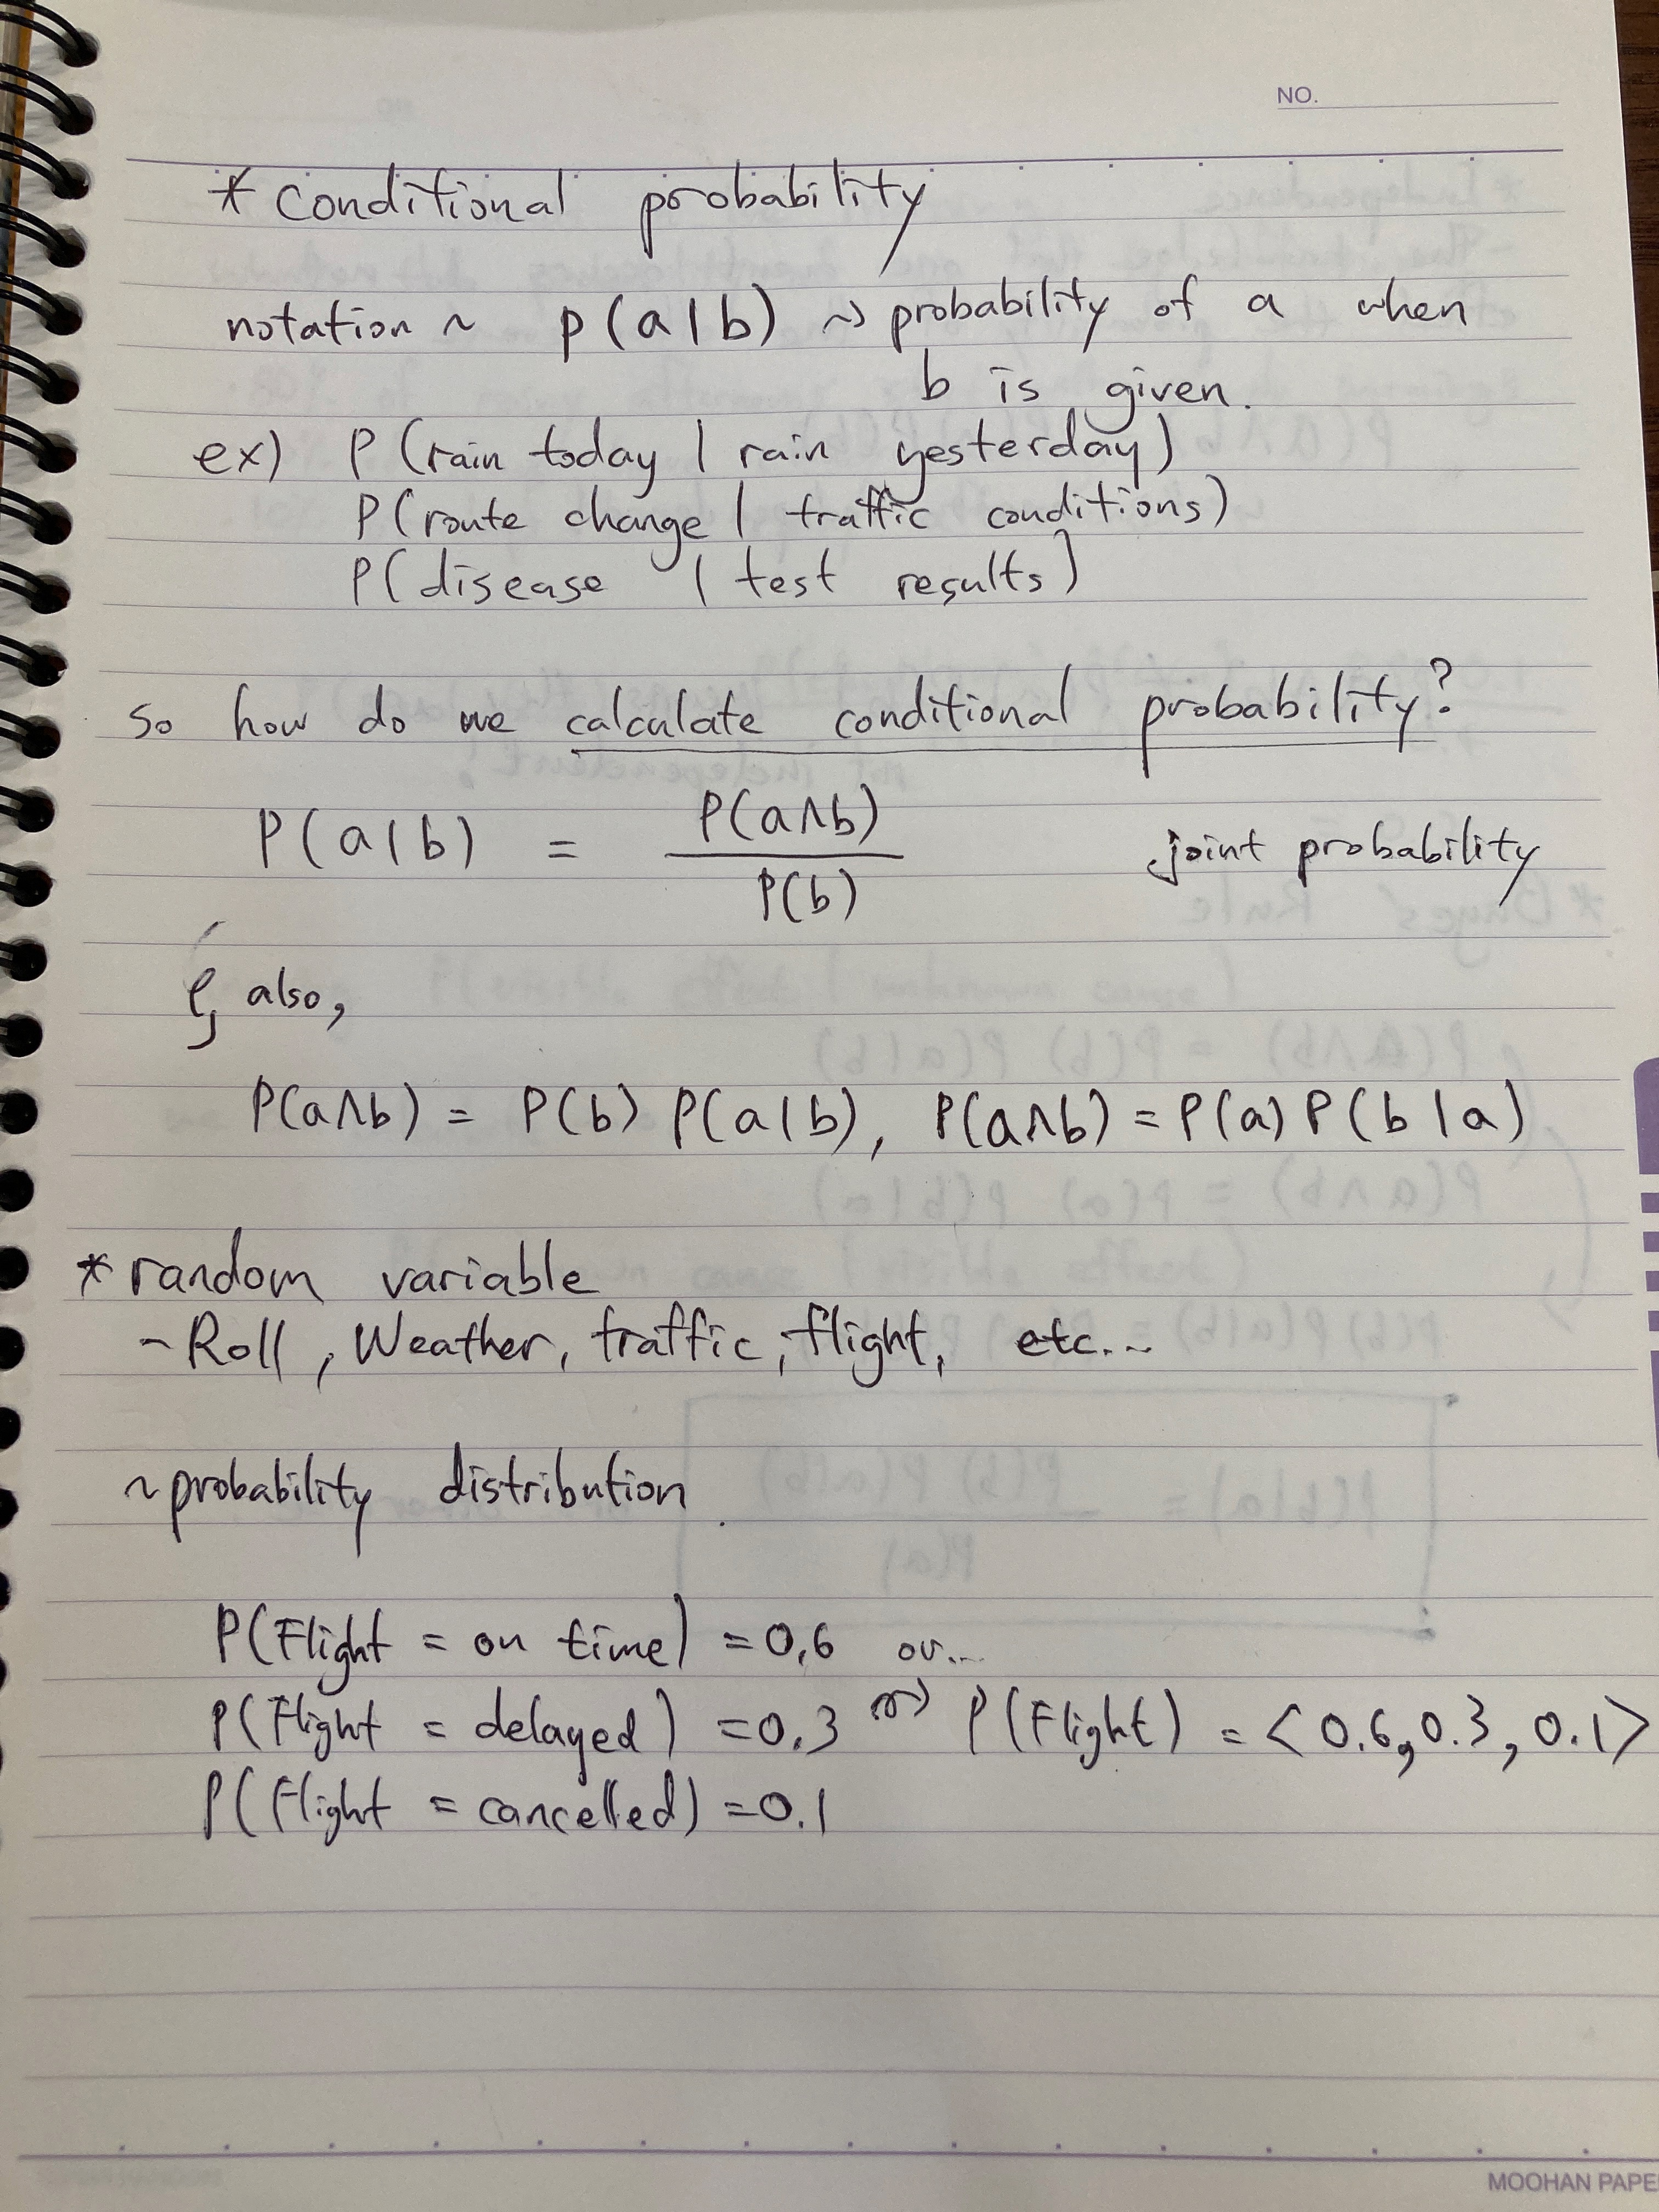 NO.
* Conditional probability
notation ~ p(a|b) ~> probability of a when
b is given.
ex) P(rain today | rain yesterday)
P(route change | traffic conditions)
P(disease | test results)
so how do we calculate conditional probability?
P(a|b) = P(a∧b) / P(b) joint probability
also,
P(a∧b) = P(b) P(a|b), P(a∧b) = P(a) P(b|a)
* random variable
- Roll, Weather, traffic, flight, etc...
~ probability distribution
P(Flight = on time) = 0.6 or...
P(Flight = delayed) = 0.3 ~> P(Flight) = <0.6, 0.3, 0.1>
P(Flight = cancelled) = 0.1
MOOHAN PAPE